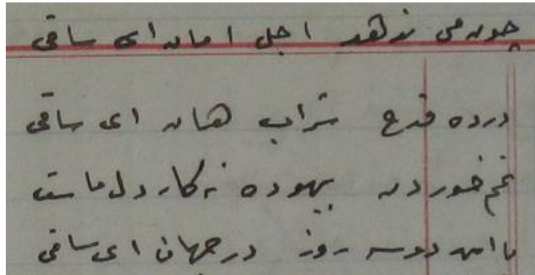 چون می ندهد اجل امان ای ساقی
درده قدح شراب هان ای ساقی
غم خوردن بیهوده نه کار دل ماست
با این دو سه روز در جهان ای ساقی